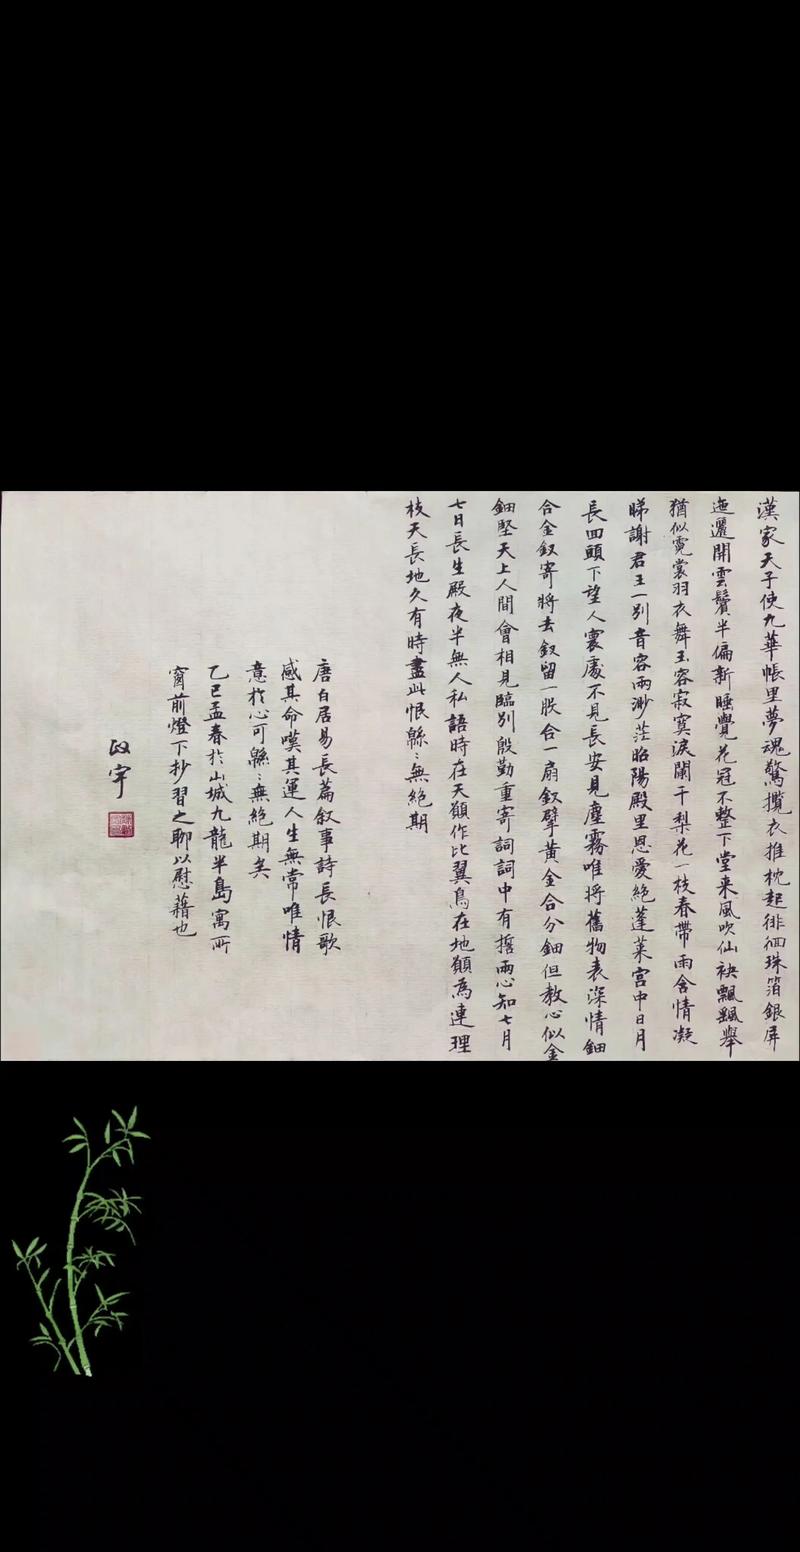 漢家天子使九華帳里夢魂驚攬衣推枕起徘徊珠箔銀屏
迤邐開雲鬢半偏新睡覺花冠不整下堂来風吹仙袂飄飄舉
猶似霓裳羽衣舞玉容寂寞淚闌干梨花一枝春帶雨含情凝
睇謝君王一別音容兩渺茫昭陽殿里恩愛絕蓬萊宮中日月
長回頭下望人寰處不見長安見塵霧唯將舊物表深情鈿
合金釵寄將去釵留一股合一扇釵擘黃金合分鈿但教心似金
鈿堅天上人間會相見臨別殷勤重寄詞詞中有誓兩心知七月
七日長生殿夜半無人私語時在天願作比翼鳥在地願為連理
枝天長地久有時盡此恨緜〻無絕期
唐白居易長篇叙事詩長恨歌
感其命嘆其運人生無常唯情
意於心可緜〻無絕期矣
乙巳孟春於山城九龍半島寓所
窗前燈下抄習之聊以慰藉也
政宇